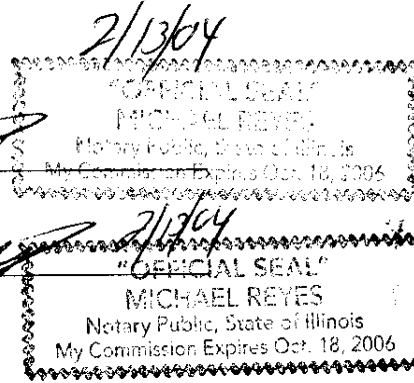 2/13/04
"OFFICIAL SEAL"
MICHAEL REYES
Notary Public, State of Illinois
My Commission Expires Oct. 18, 2006
2/13/04
"OFFICIAL SEAL"
MICHAEL REYES
Notary Public, State of Illinois
My Commission Expires Oct. 18, 2006